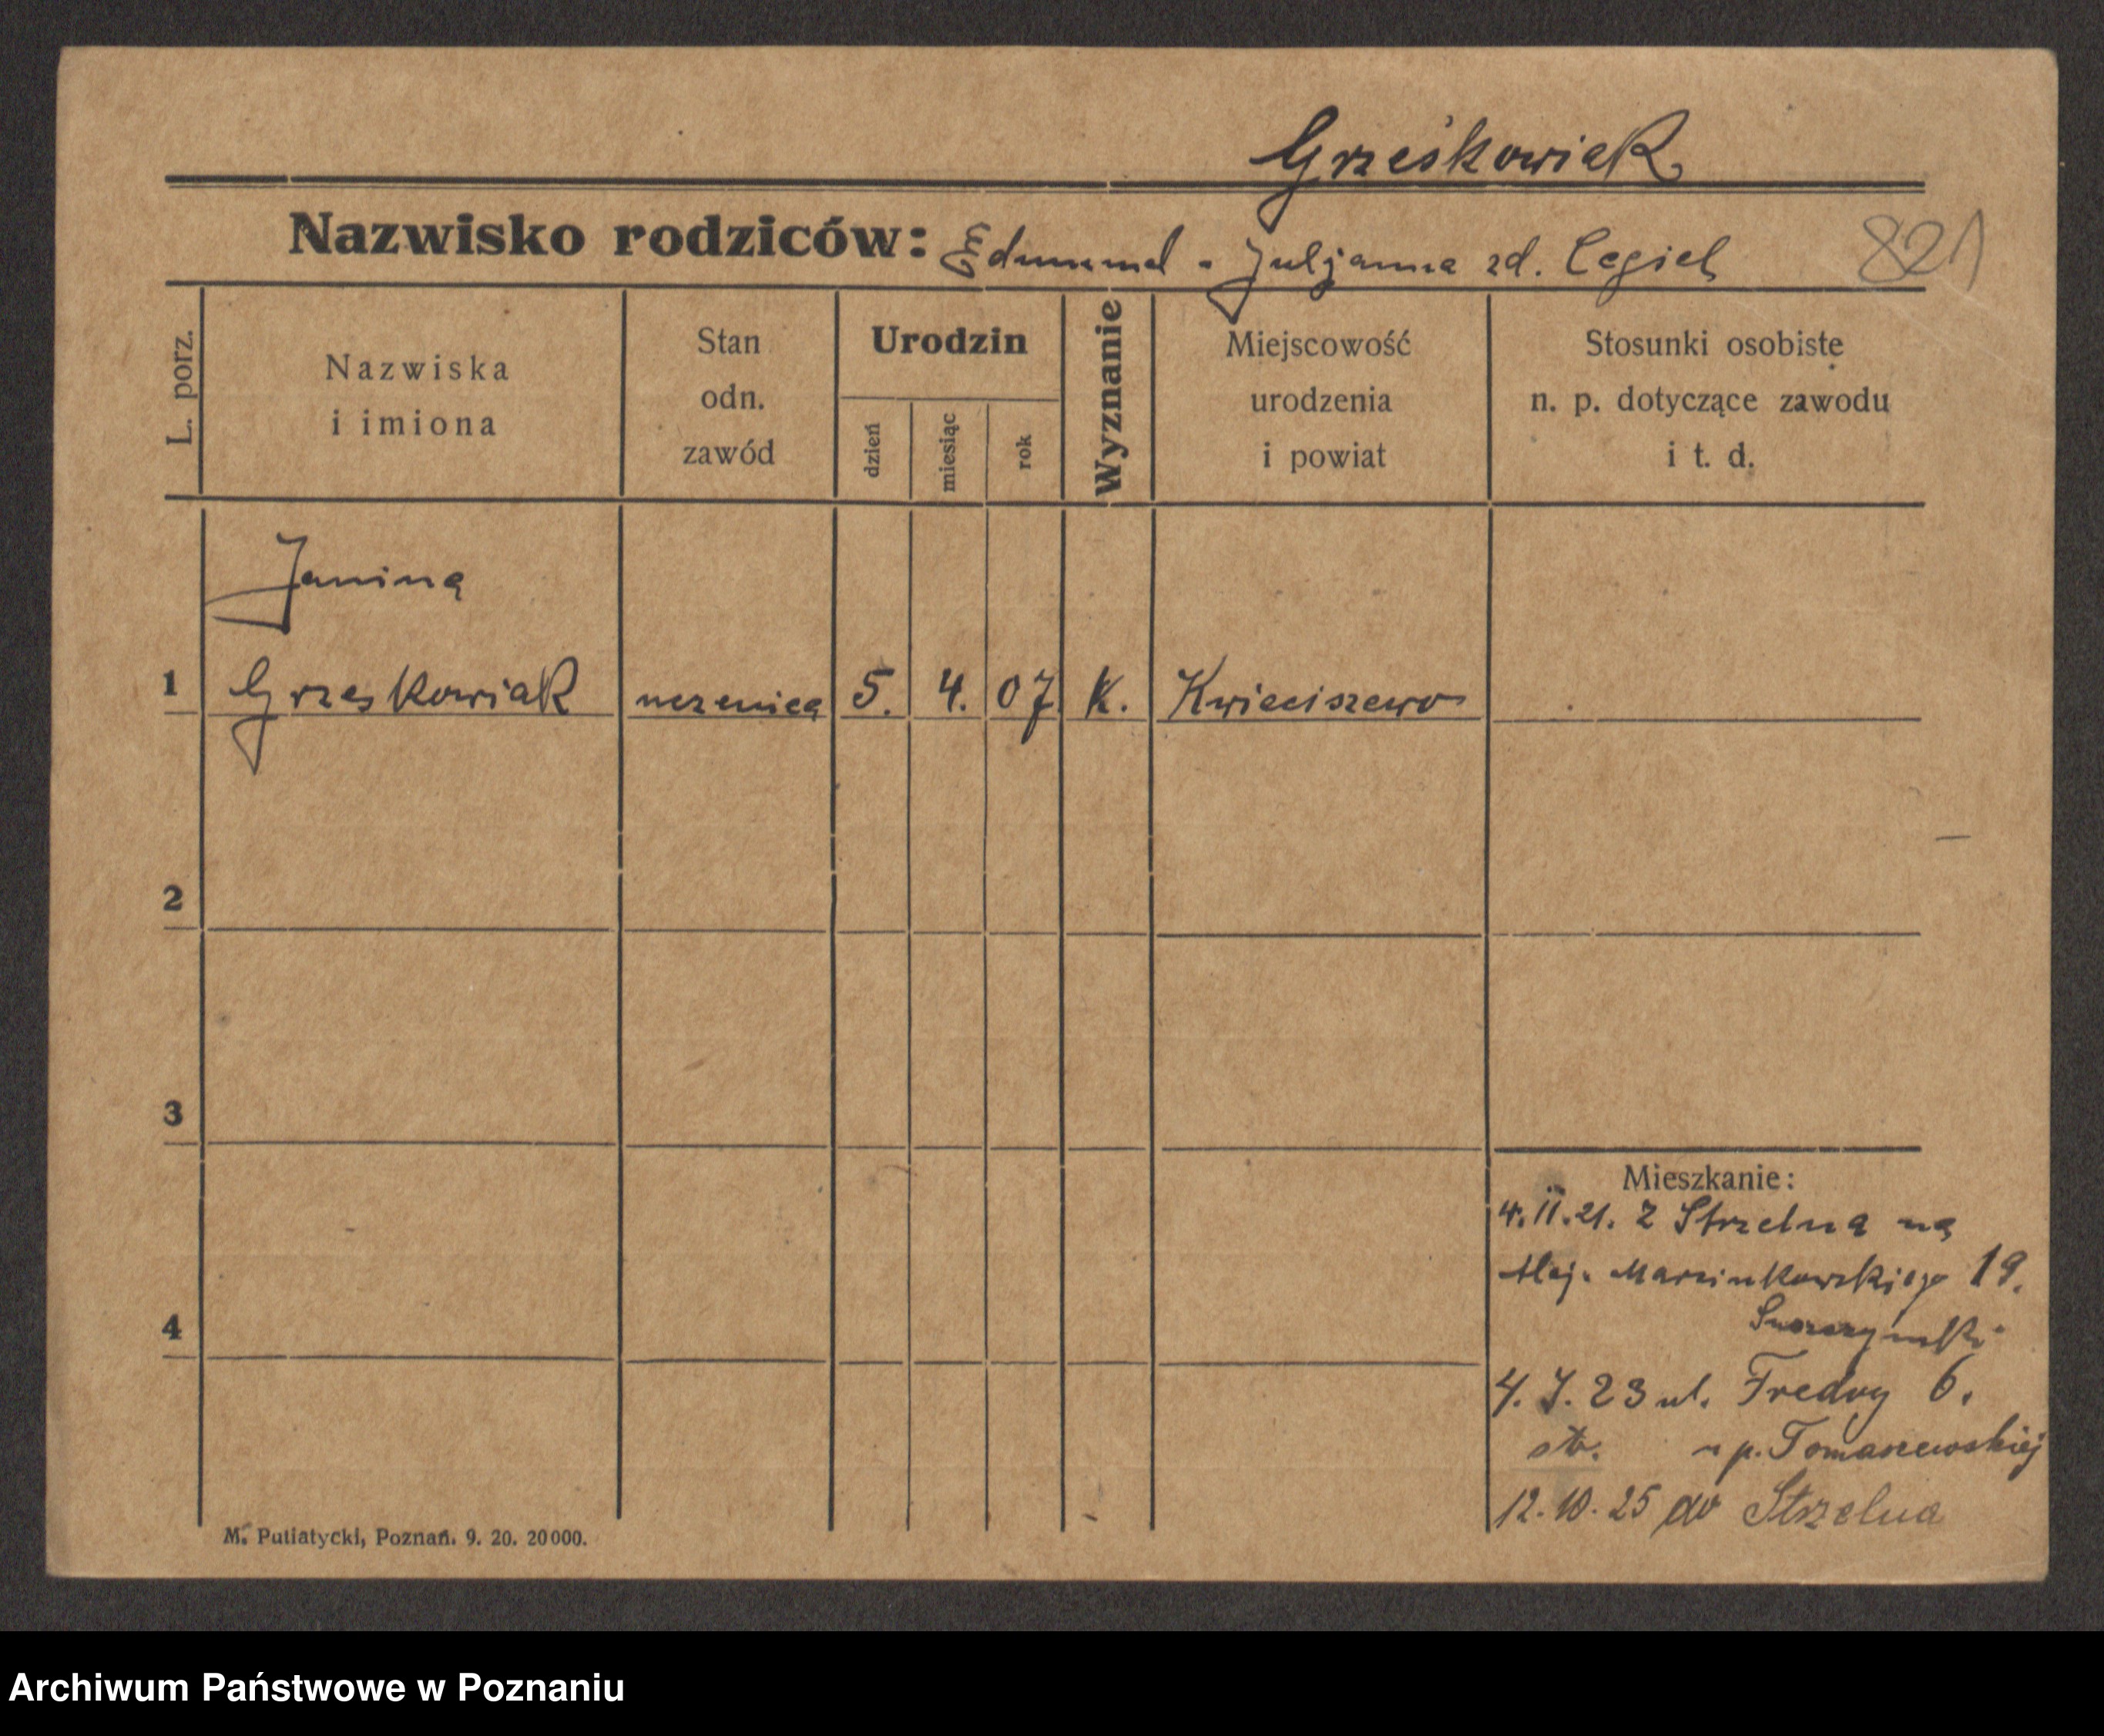 Grześkowiak
Nazwisko rodziców: Edmund - Juljanna zd. Cegiel
821
L. porz.
Nazwiska
i imiona
Stan
odn.
zawód
Urodzin
dzień
miesiąc
rok
Wyznanie
Miejscowość
urodzenia
i powiat
Stosunki osobiste
n. p. dotyczące zawodu
i t. d.
Janina
1 Grzeskowiak uczenica 5. 4. 07 K. Kwieciszewo
2
3
4
Mieszkanie:
4. II. 21. z Strzelna na
Alej. Marcinkowskiego 19.
4. 7. 23 ul. Fredry 6.
p. Tomaszewskiej
12. 10. 25 do Strzelna
M. Putiatycki, Poznań. 9. 20. 20000.
Archiwum Państwowe w Poznaniu